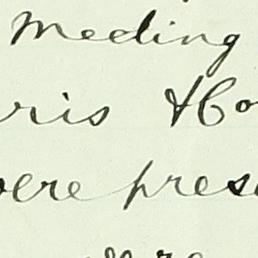 Meeting
ris & Co
were pres